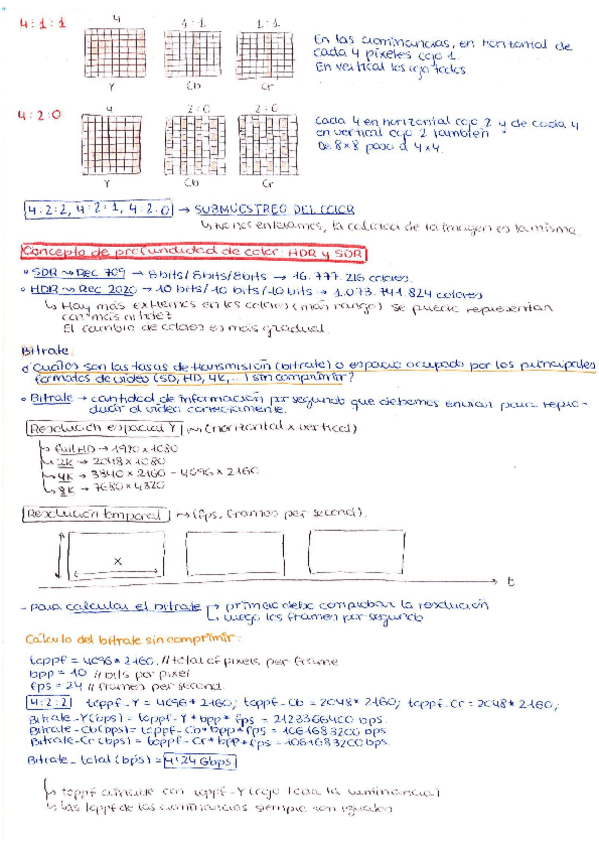 4:1:1
4
1:1
1:1
Y
Cb
Cr
En las crominancias, en horizontal de
cada 4 píxeles cojo 1.
En vertical los cojo todos
4:2:0
4
2:0
2:0
Y
Cb
Cr
Cada 4 en horizontal cojo 2 y de cada 4
en vertical cojo 2 también
De 8x8 paso a 4x4.
4:2:2, 4:2:1, 4:2:0 → SUBMUESTREO DEL COLOR
la calidad de la imagen es la misma.
Concepto de profundidad de color: HDR y SDR
• SDR → Rec 709 → 8bits/8bits/8bits → 16.777.216 colores.
• HDR → Rec 2020 → 10 bits/10 bits/10 bits → 1.073.741.824 colores
↳ Hay más extremos en los colores (más rango) se puede representar
con más nitidez
El cambio de colores es más gradual.
Bitrate
¿Cuáles son las tasas de transmisión (bitrate) o espacio ocupado por los principales
formatos de video (SD, HD, 4K, ...) sin comprimir?
• Bitrate → cantidad de información por segundo que debemos enviar para repro-
ducir al video correctamente.
Resolución espacial Y → (horizontal x vertical)
↳ full HD → 1920 x 1080
↳ 2K → 2048 x 1080
↳ 4K → 3840 x 2160 - 4096 x 2160
↳ 8K → 7680 x 4320
Resolución temporal → (fps, frames per second).
X
t
- Para calcular el bitrate → primero debo comprobar la resolución
↳ luego los frames por segundo
Cálculo del bitrate sin comprimir:
toppf = 4096 * 2160. // total of pixels per frame
bpp = 10 // bits por pixel
fps = 24 // frames per second
4:2:2 toppf-Y = 4096 * 2160; toppf-Cb = 2048 * 2160; toppf-Cr = 2048 * 2160;
Bitrate-Y(bps) = toppf-Y * bpp * fps = 2123366400 bps.
Bitrate-Cb(bps) = toppf-Cb * bpp * fps = 1061683200 bps
Bitrate-Cr(bps) = toppf-Cr * bpp * fps = 1061683200 bps
Bitrate-total (bps) = 4'24 Gbps
↳ toppf coincide con toppf-Y (cojo toda la luminancia)
↳ las toppf de las crominancias siempre son iguales